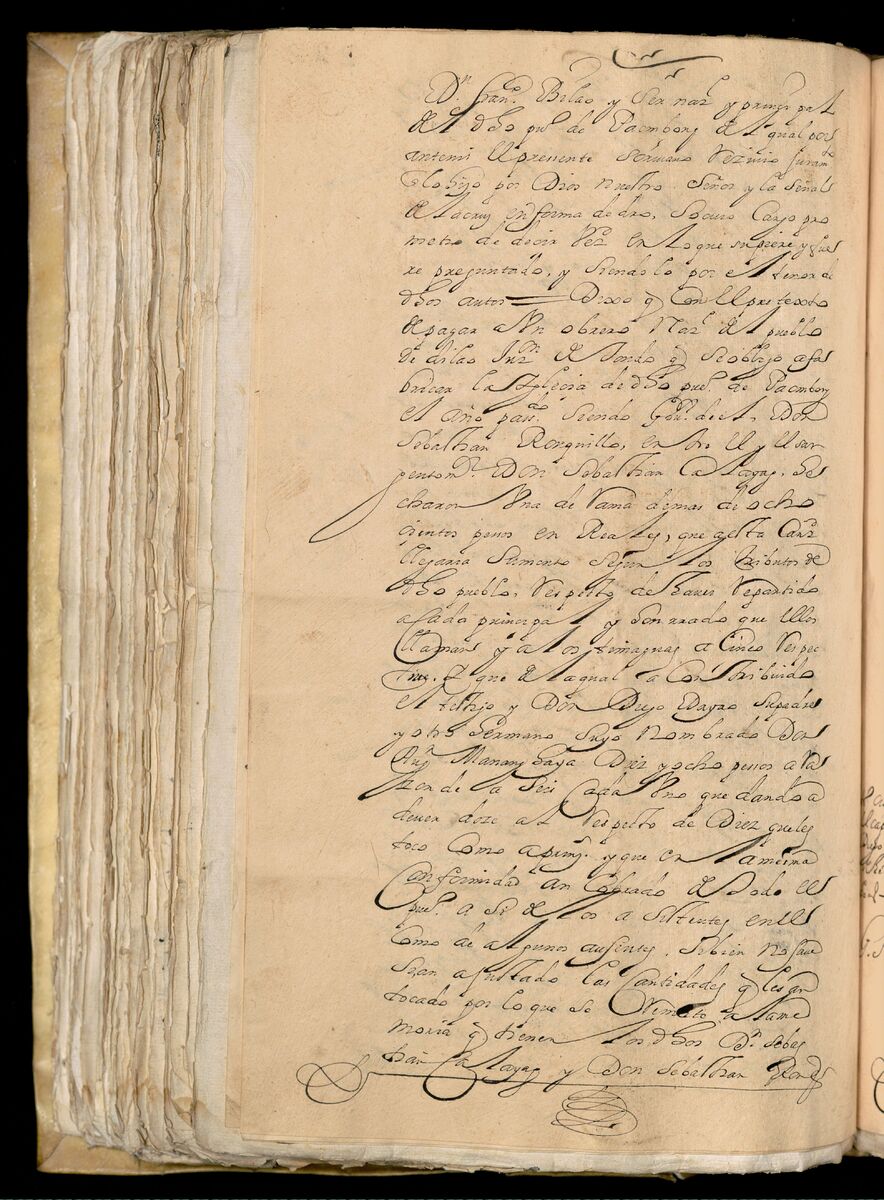 Dn. Franco. Bilao y Ser natl. y principal
del dho pueo. de Pacmbong del qual por
antemi el presente Scrivano Rezivio juramto.
q lo hijo por Dios nuestro Señor y la Señal
de la cruz en forma de dro, Socuio Cargo pro
metio de decir Verd en lo que supiere y fue
re preguntado, y siendolo por el tenor de
dhos autos = Dixo q con el pretexto
de pagar a Un obrero Natl. del pueblo
de dilao Juan de Tondo q Se oblijo a fa
bricar la Iglecia de dho pueo. de Pacmbong
el año pasdo. Siendo Gor. de el, Don
Sebasthian Ronquillo, entre el y el sar
gentomr. Don Sebasthian Calayag, he
charon Una derrama de mas de ocho
cientos pesos en Reales, que a esta Cantd
llegaria Sumento Segun los tributos de
dho pueblo, Respecto de haver Repartido
a cada principal y honrrado que ellos
llaman y a los timaguas a Cinco Respec
tive. que de la qual a Contribuido
el testigo y Don Diego Dayao Su padre
y otro hermano Suyo Nombrado Don
Aug. Mananghaya Diez y ocho pesos a Ra
zon de a Seis Cada Uno quedando a
dever doze al Respecto de Diez que les
toco Como a prinpl. y que en la misma
Conformidad an Cobrado de todo el
pueo. a Si de los a Sistentes en el
Como de algunos ausentes. Si bien no save
Seran ajustado las Cantidades q les an
tocado por lo que se Remite a la me
moria q tienen los dhos Dn. Sebas
thian Calayag y Don Sebasthian Ronqo